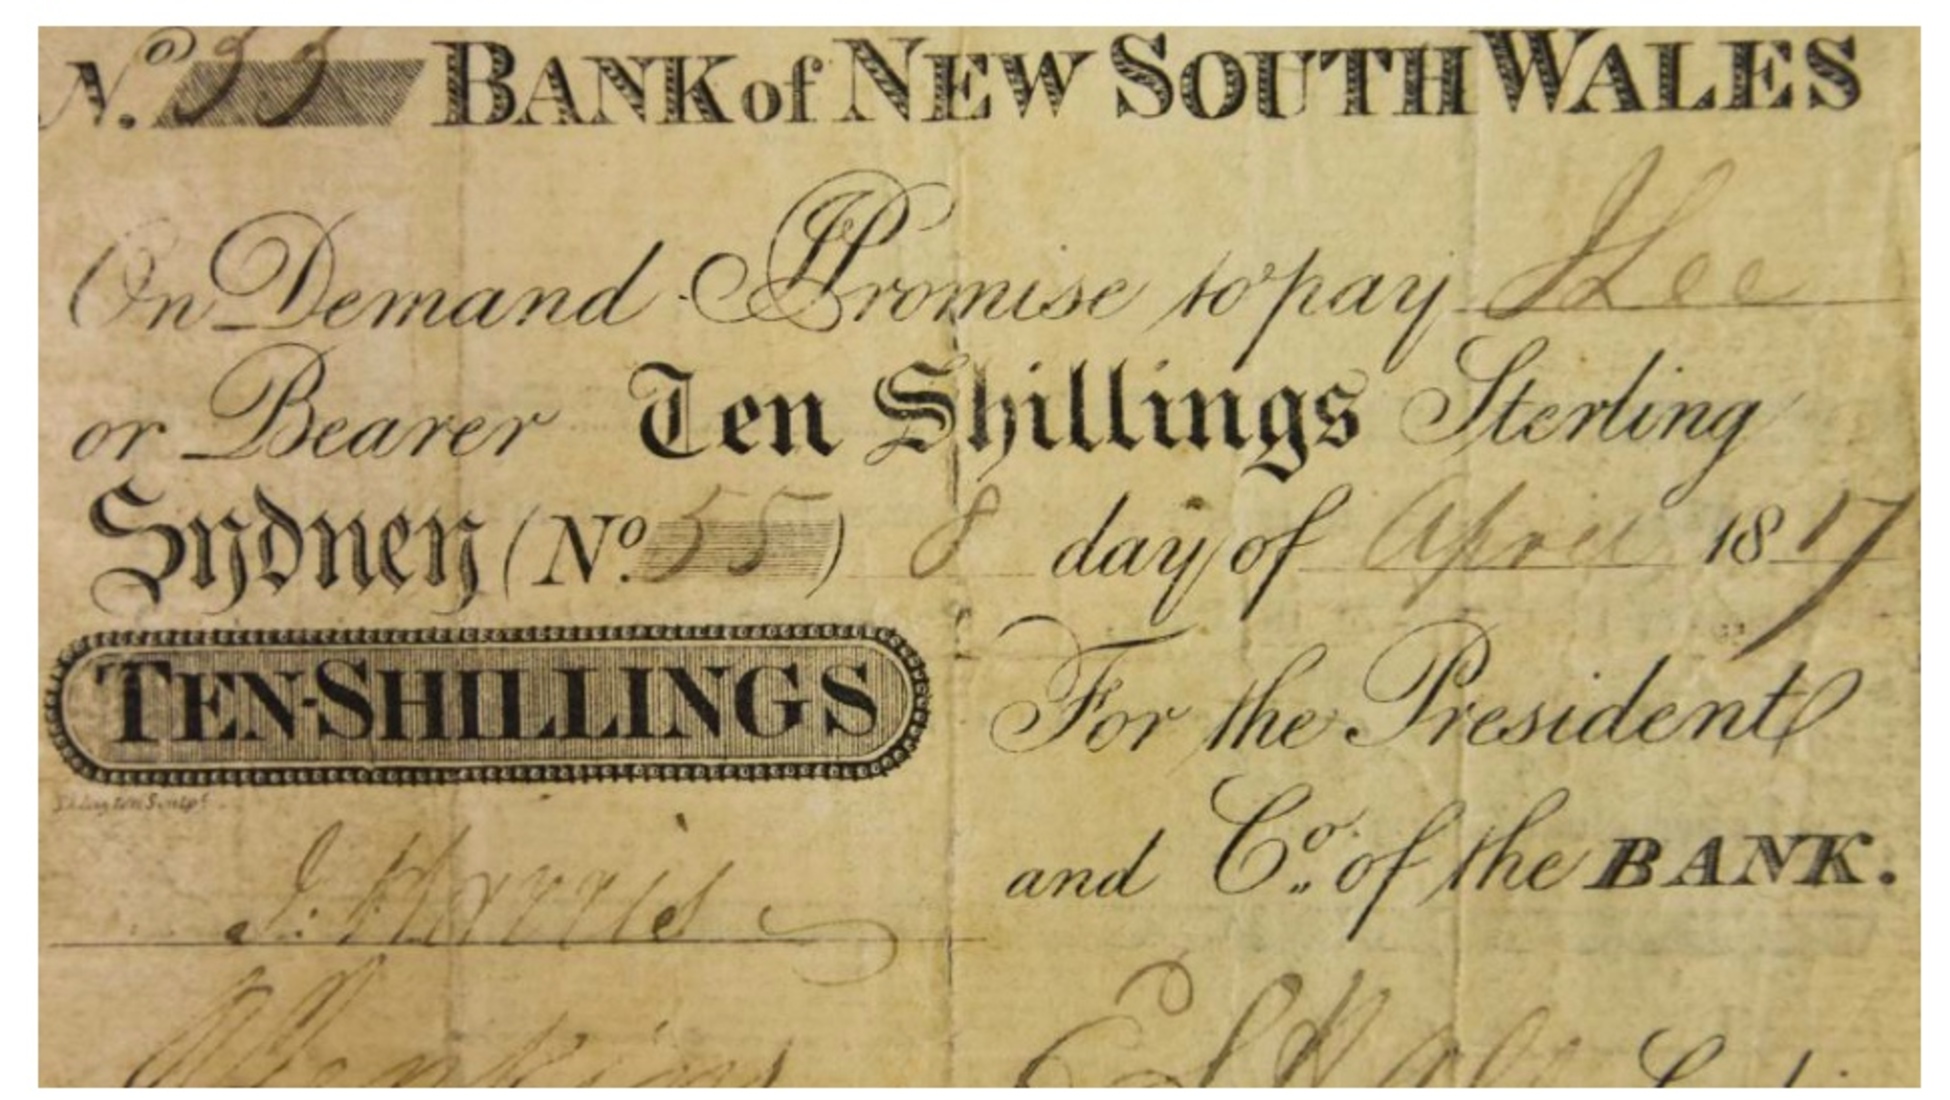 No. 55 BANK of NEW SOUTH WALES
On Demand I Promise to pay J Lee
or Bearer Ten Shillings Sterling
Sydney (No. 55) 8 day of April 1817
TEN-SHILLINGS
For the President
and Co. of the BANK.
J. Harris
Jenkins
E S Hall